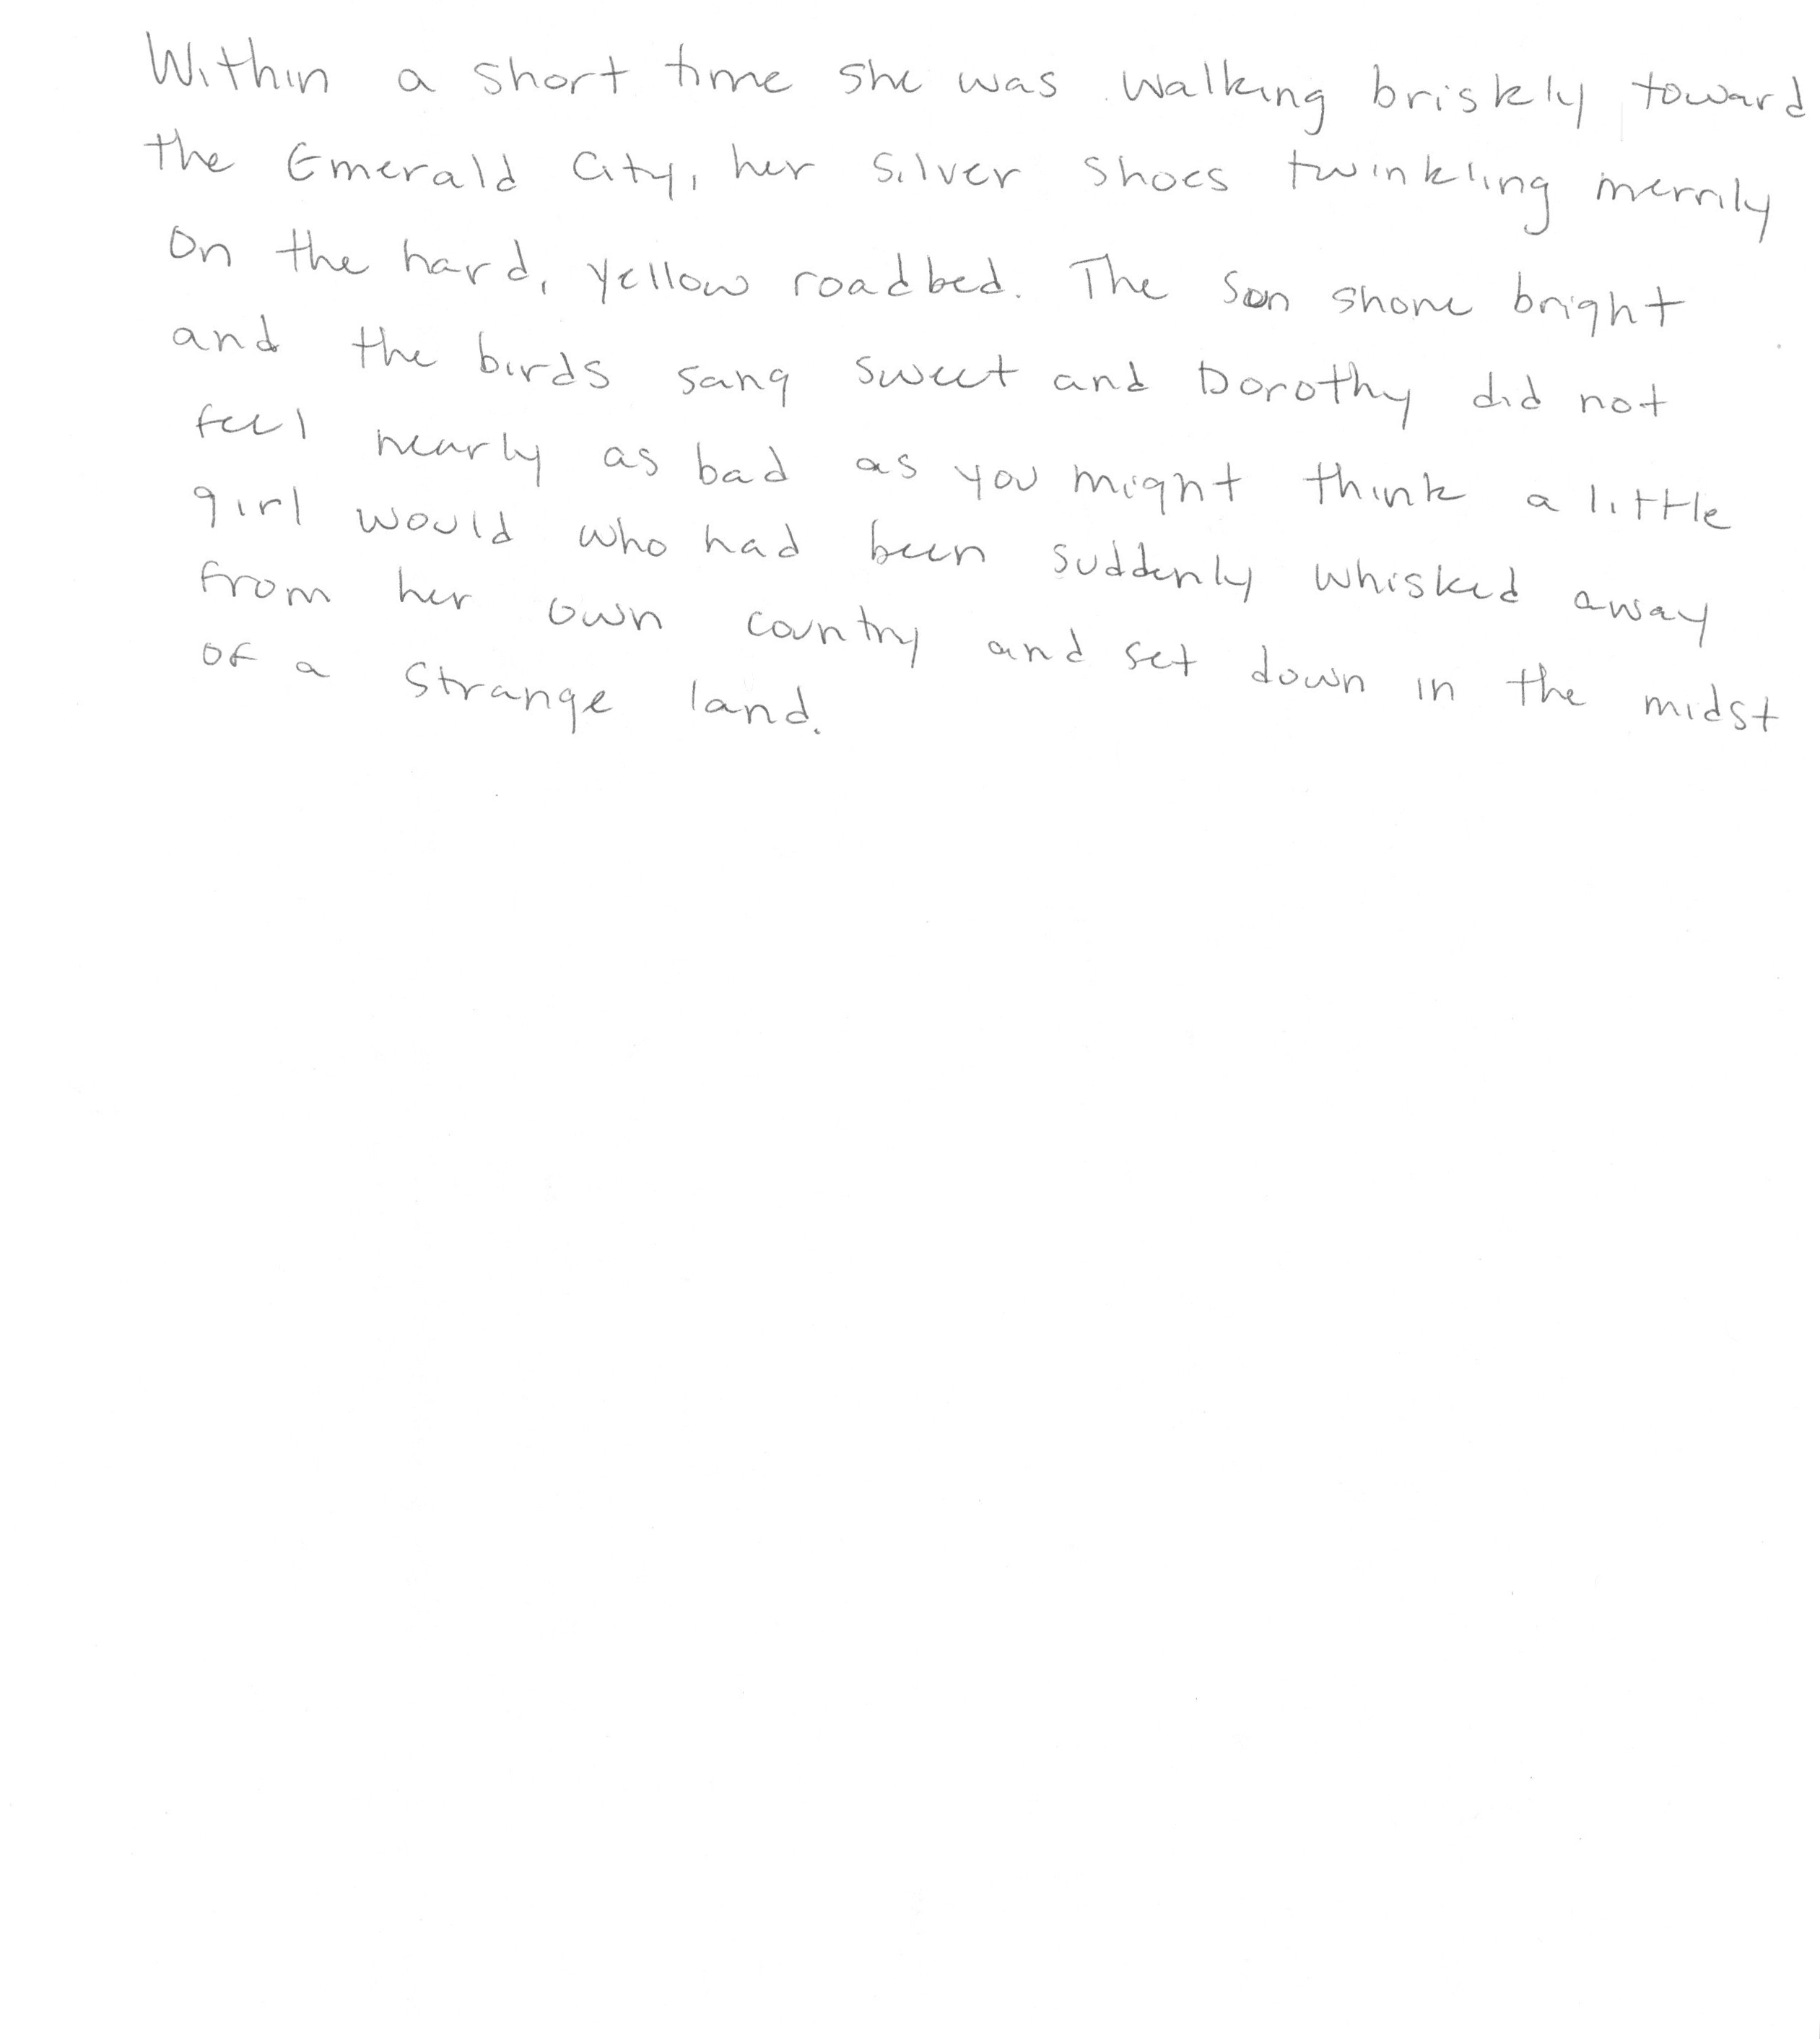 Within a short time she was walking briskly toward
the Emerald City, her silver shoes twinkling merrily
on the hard, yellow roadbed. The sun shone bright
and the birds sang sweet and Dorothy did not
feel nearly as bad as you might think a little
girl would who had been suddenly whisked away
from her own country and set down in the midst
of a strange land.